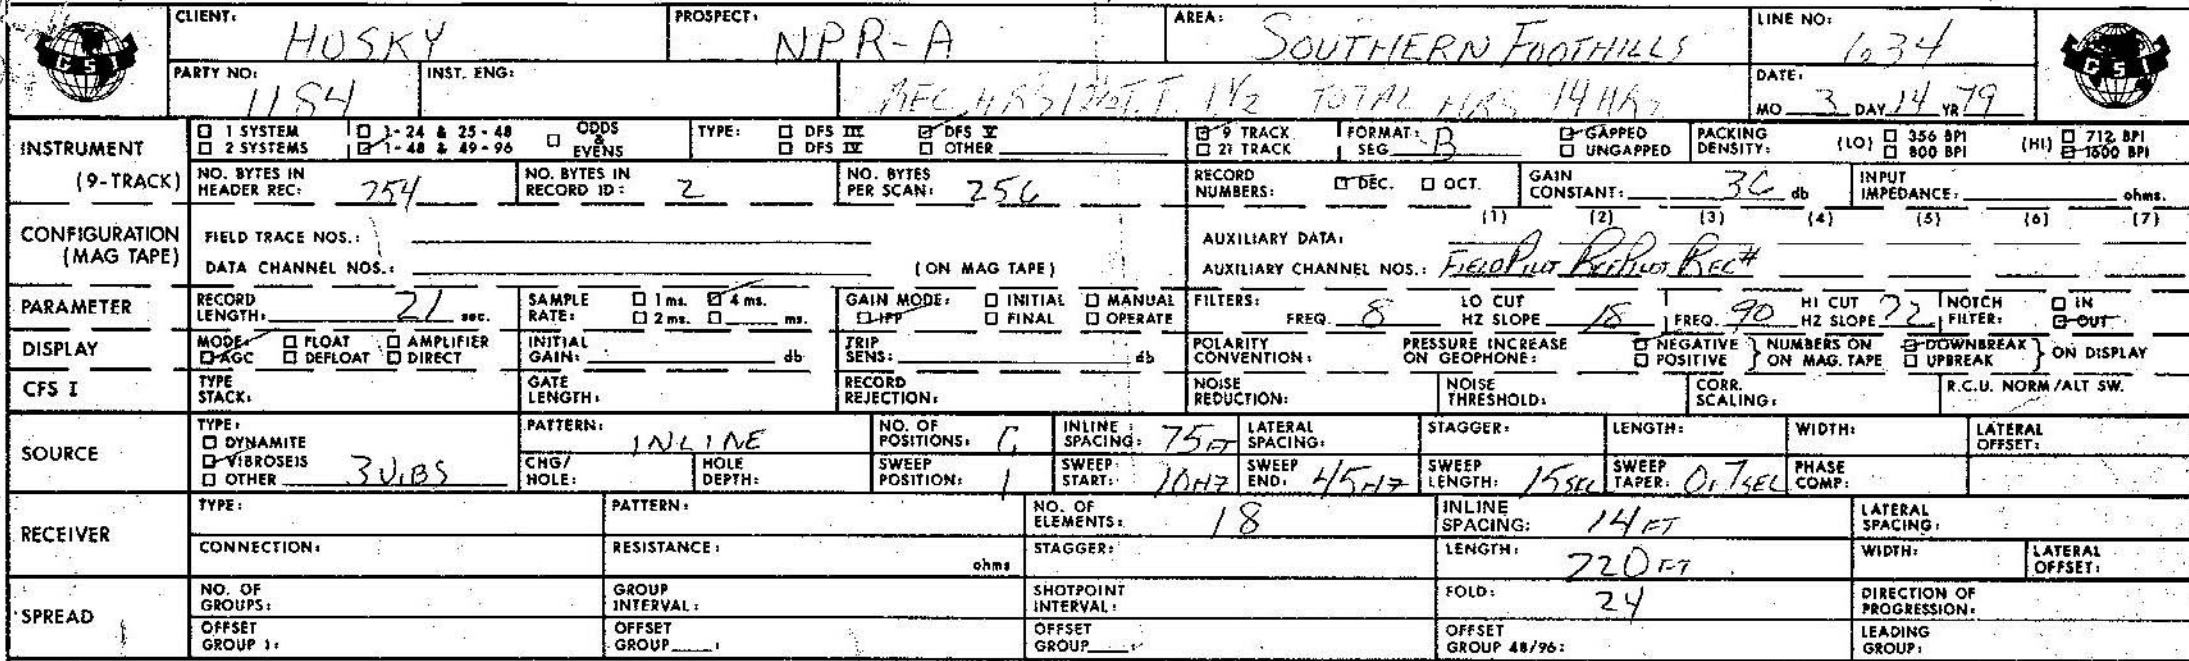 CLIENT: HUSKY PROSPECT: NPR-A AREA: SOUTHERN FOOTHILLS LINE NO: 634
GSI GSI
PARTY NO: 1184 INST. ENG: T.T. 1½ TOTAL HRS 14 HRS DATE: MO 3 DAY 14 YR 79
INSTRUMENT (9-TRACK)
☐ 1 SYSTEM ☐ 1-24 & 25-48 ☐ ODDS & EVENS TYPE: ☐ DFS III ☑ DFS V ☑ 9 TRACK FORMAT: SEG B ☑ GAPPED PACKING DENSITY: (LO) ☐ 356 BPI (HI) ☐ 712 BPI
☐ 2 SYSTEMS ☑ 1-48 & 49-96 ☐ DFS IV ☐ OTHER ☐ 21 TRACK ☐ UNGAPPED ☐ 800 BPI ☑ 1600 BPI
NO. BYTES IN HEADER REC: 254 NO. BYTES IN RECORD ID: 2 NO. BYTES PER SCAN: 256 RECORD NUMBERS: ☑ DEC. ☐ OCT. GAIN CONSTANT: 36 db INPUT IMPEDANCE: ohms.
CONFIGURATION (MAG TAPE)
(1) (2) (3) (4) (5) (6) (7)
FIELD TRACE NOS.: AUXILIARY DATA:
DATA CHANNEL NOS.: (ON MAG TAPE) AUXILIARY CHANNEL NOS.: FIELD PILOT REF PILOT REC#
PARAMETER
RECORD LENGTH: 21 sec. SAMPLE RATE: ☐ 1 ms. ☑ 4 ms. ☐ 2 ms. ☐ ms. GAIN MODE: ☐ INITIAL ☐ MANUAL ☑ IFP ☐ FINAL ☐ OPERATE FILTERS: FREQ. 8 LO CUT HZ SLOPE 18 FREQ. 90 HI CUT HZ SLOPE 72 NOTCH FILTER: ☐ IN ☑ OUT
DISPLAY
MODE: ☐ FLOAT ☐ AMPLIFIER ☑ AGC ☐ DEFLOAT ☐ DIRECT INITIAL GAIN: db TRIP SENS: db POLARITY CONVENTION: PRESSURE INCREASE ON GEOPHONE: ☑ NEGATIVE ☐ POSITIVE } NUMBERS ON MAG. TAPE ☑ DOWNBREAK ☐ UPBREAK } ON DISPLAY
CFS I
TYPE STACK: GATE LENGTH: RECORD REJECTION: NOISE REDUCTION: NOISE THRESHOLD: CORR. SCALING: R.C.U. NORM/ALT SW.
SOURCE
TYPE: ☐ DYNAMITE ☑ VIBROSEIS ☐ OTHER 3 VIBS PATTERN: INLINE NO. OF POSITIONS: INLINE SPACING: 75 FT LATERAL SPACING: STAGGER: LENGTH: WIDTH: LATERAL OFFSET:
CHG/HOLE: HOLE DEPTH: SWEEP POSITION: 1 SWEEP START: 10HZ SWEEP END: 45HZ SWEEP LENGTH: 15SEC SWEEP TAPER: 0.7SEC PHASE COMP:
RECEIVER
TYPE: PATTERN: NO. OF ELEMENTS: 18 INLINE SPACING: 14 FT LATERAL SPACING:
CONNECTION: RESISTANCE: ohms STAGGER: LENGTH: 220 FT WIDTH: LATERAL OFFSET:
SPREAD
NO. OF GROUPS: GROUP INTERVAL: SHOTPOINT INTERVAL: FOLD: 24 DIRECTION OF PROGRESSION:
OFFSET GROUP 1: OFFSET GROUP : OFFSET GROUP : OFFSET GROUP 48/96: LEADING GROUP: